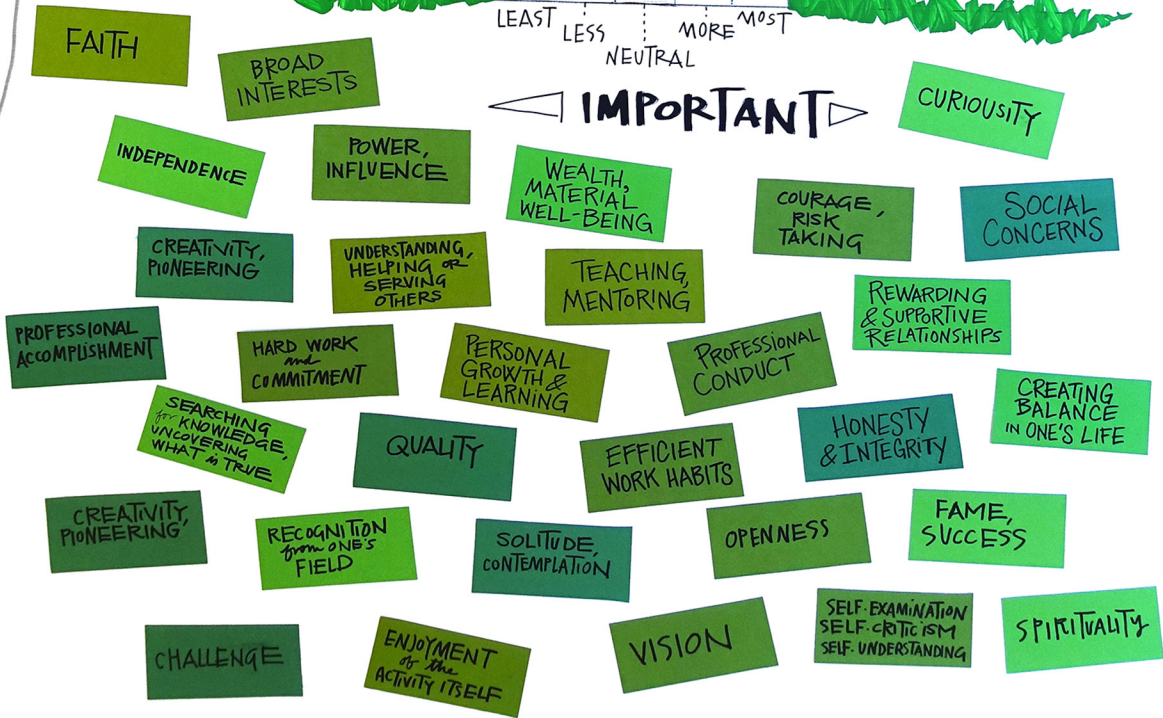 LEAST
LESS
NEUTRAL
MORE
MOST
IMPORTANT
FAITH
BROAD
INTERESTS
CURIOUSITY
INDEPENDENCE
POWER,
INFLUENCE
WEALTH,
MATERIAL
WELL-BEING
COURAGE,
RISK
TAKING
SOCIAL
CONCERNS
CREATIVITY,
PIONEERING
UNDERSTANDING,
HELPING OR
SERVING
OTHERS
TEACHING,
MENTORING
REWARDING
& SUPPORTIVE
RELATIONSHIPS
PROFESSIONAL
ACCOMPLISHMENT
HARD WORK
and
COMMITMENT
PERSONAL
GROWTH &
LEARNING
PROFESSIONAL
CONDUCT
CREATING
BALANCE
IN ONE'S LIFE
SEARCHING
for KNOWLEDGE,
UNCOVERING
WHAT is TRUE
QUALITY
EFFICIENT
WORK HABITS
HONESTY
& INTEGRITY
CREATIVITY,
PIONEERING
RECOGNITION
from ONE'S
FIELD
SOLITUDE,
CONTEMPLATION
OPENNESS
FAME,
SUCCESS
CHALLENGE
ENJOYMENT
of the
ACTIVITY ITSELF
VISION
SELF-EXAMINATION
SELF-CRITICISM
SELF-UNDERSTANDING
SPIRITUALITY